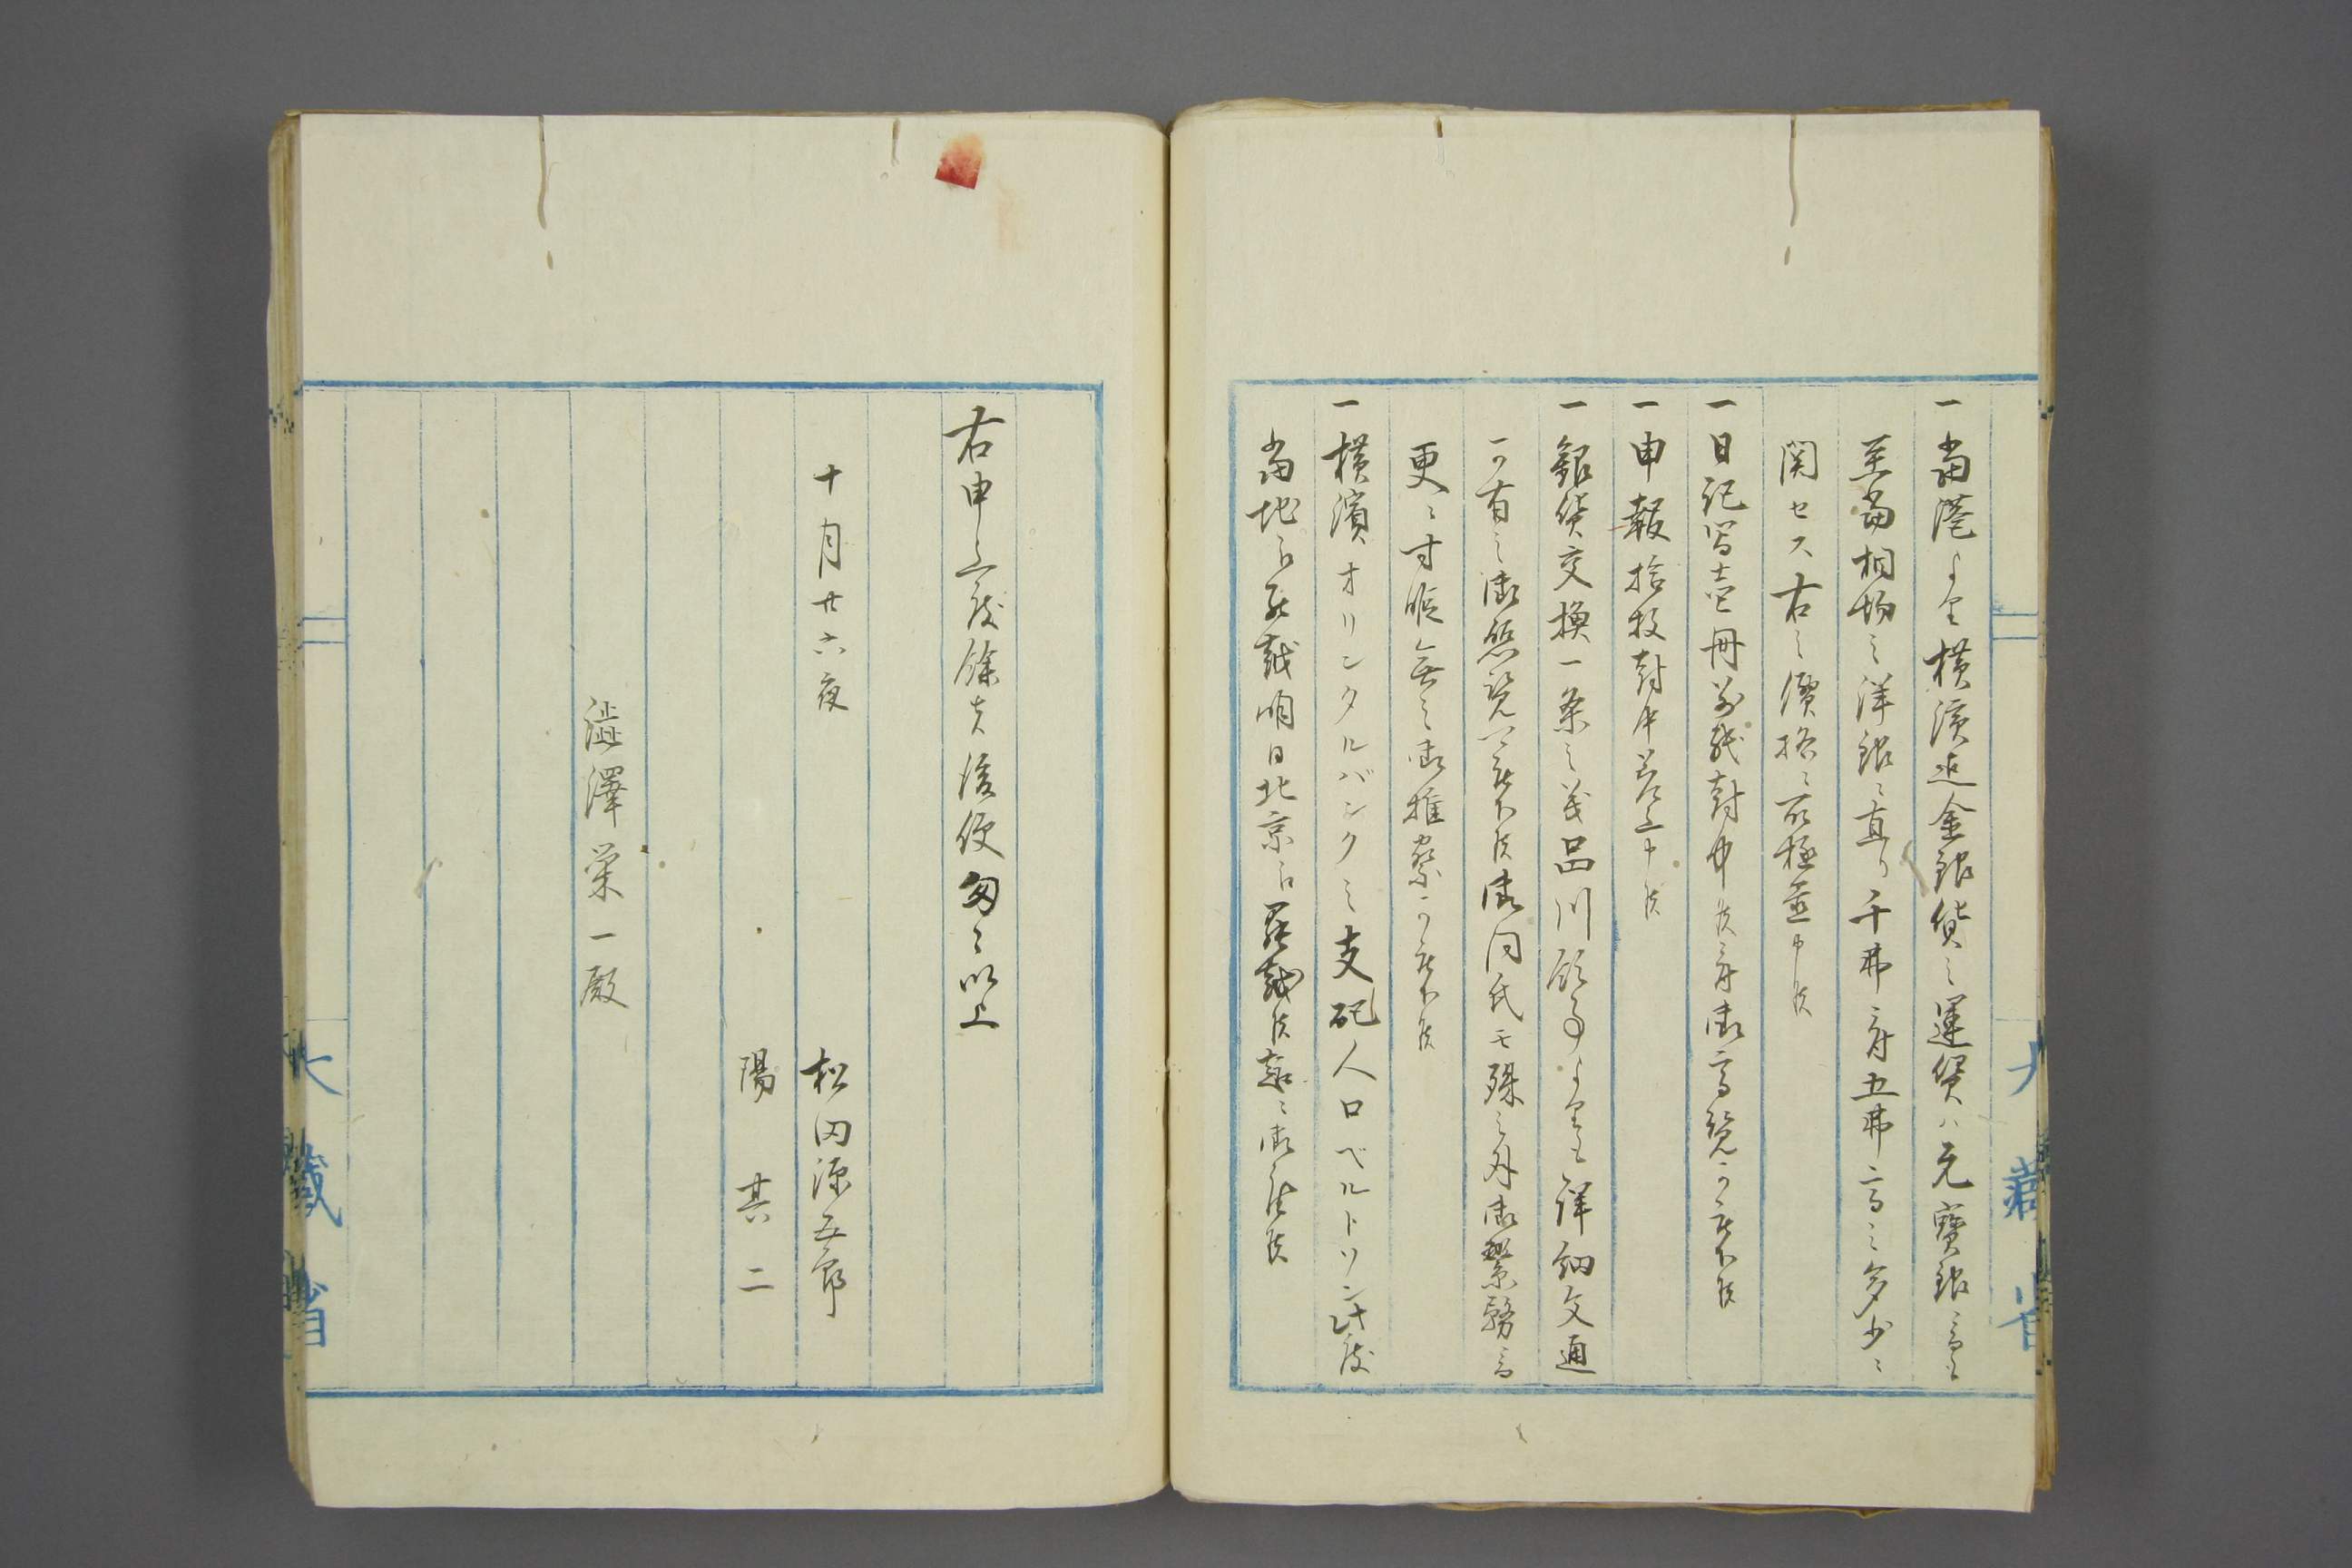 一當港ヨリ横濱迄金銀貨之運賃ハ元寶銀ニ而も
至當相場之洋銀ニ直り千弗ニ付五弗二而之多少ニ
関セス右之價格ニ取極置申候
一日記写壱冊別紙封中候ニ付御高覧可被下候
一申報拾枚封中差上申候
一銀貨交換一条之義品川領事より委詳細文通
可有之御熟覧可被下候御同氏モ殊之外御繁務ニ而
更ニ寸暇無之御推察可被下候
一横濱オリンタルバンク之支配人ロベルトソン此度
當地江罷越明日北京江罷越候趣ニ御座候
大藏省
右申上度餘者後便匆々以上
十月廿六夜
松田源五郎
陽其二
澁澤栄一殿
大藏省